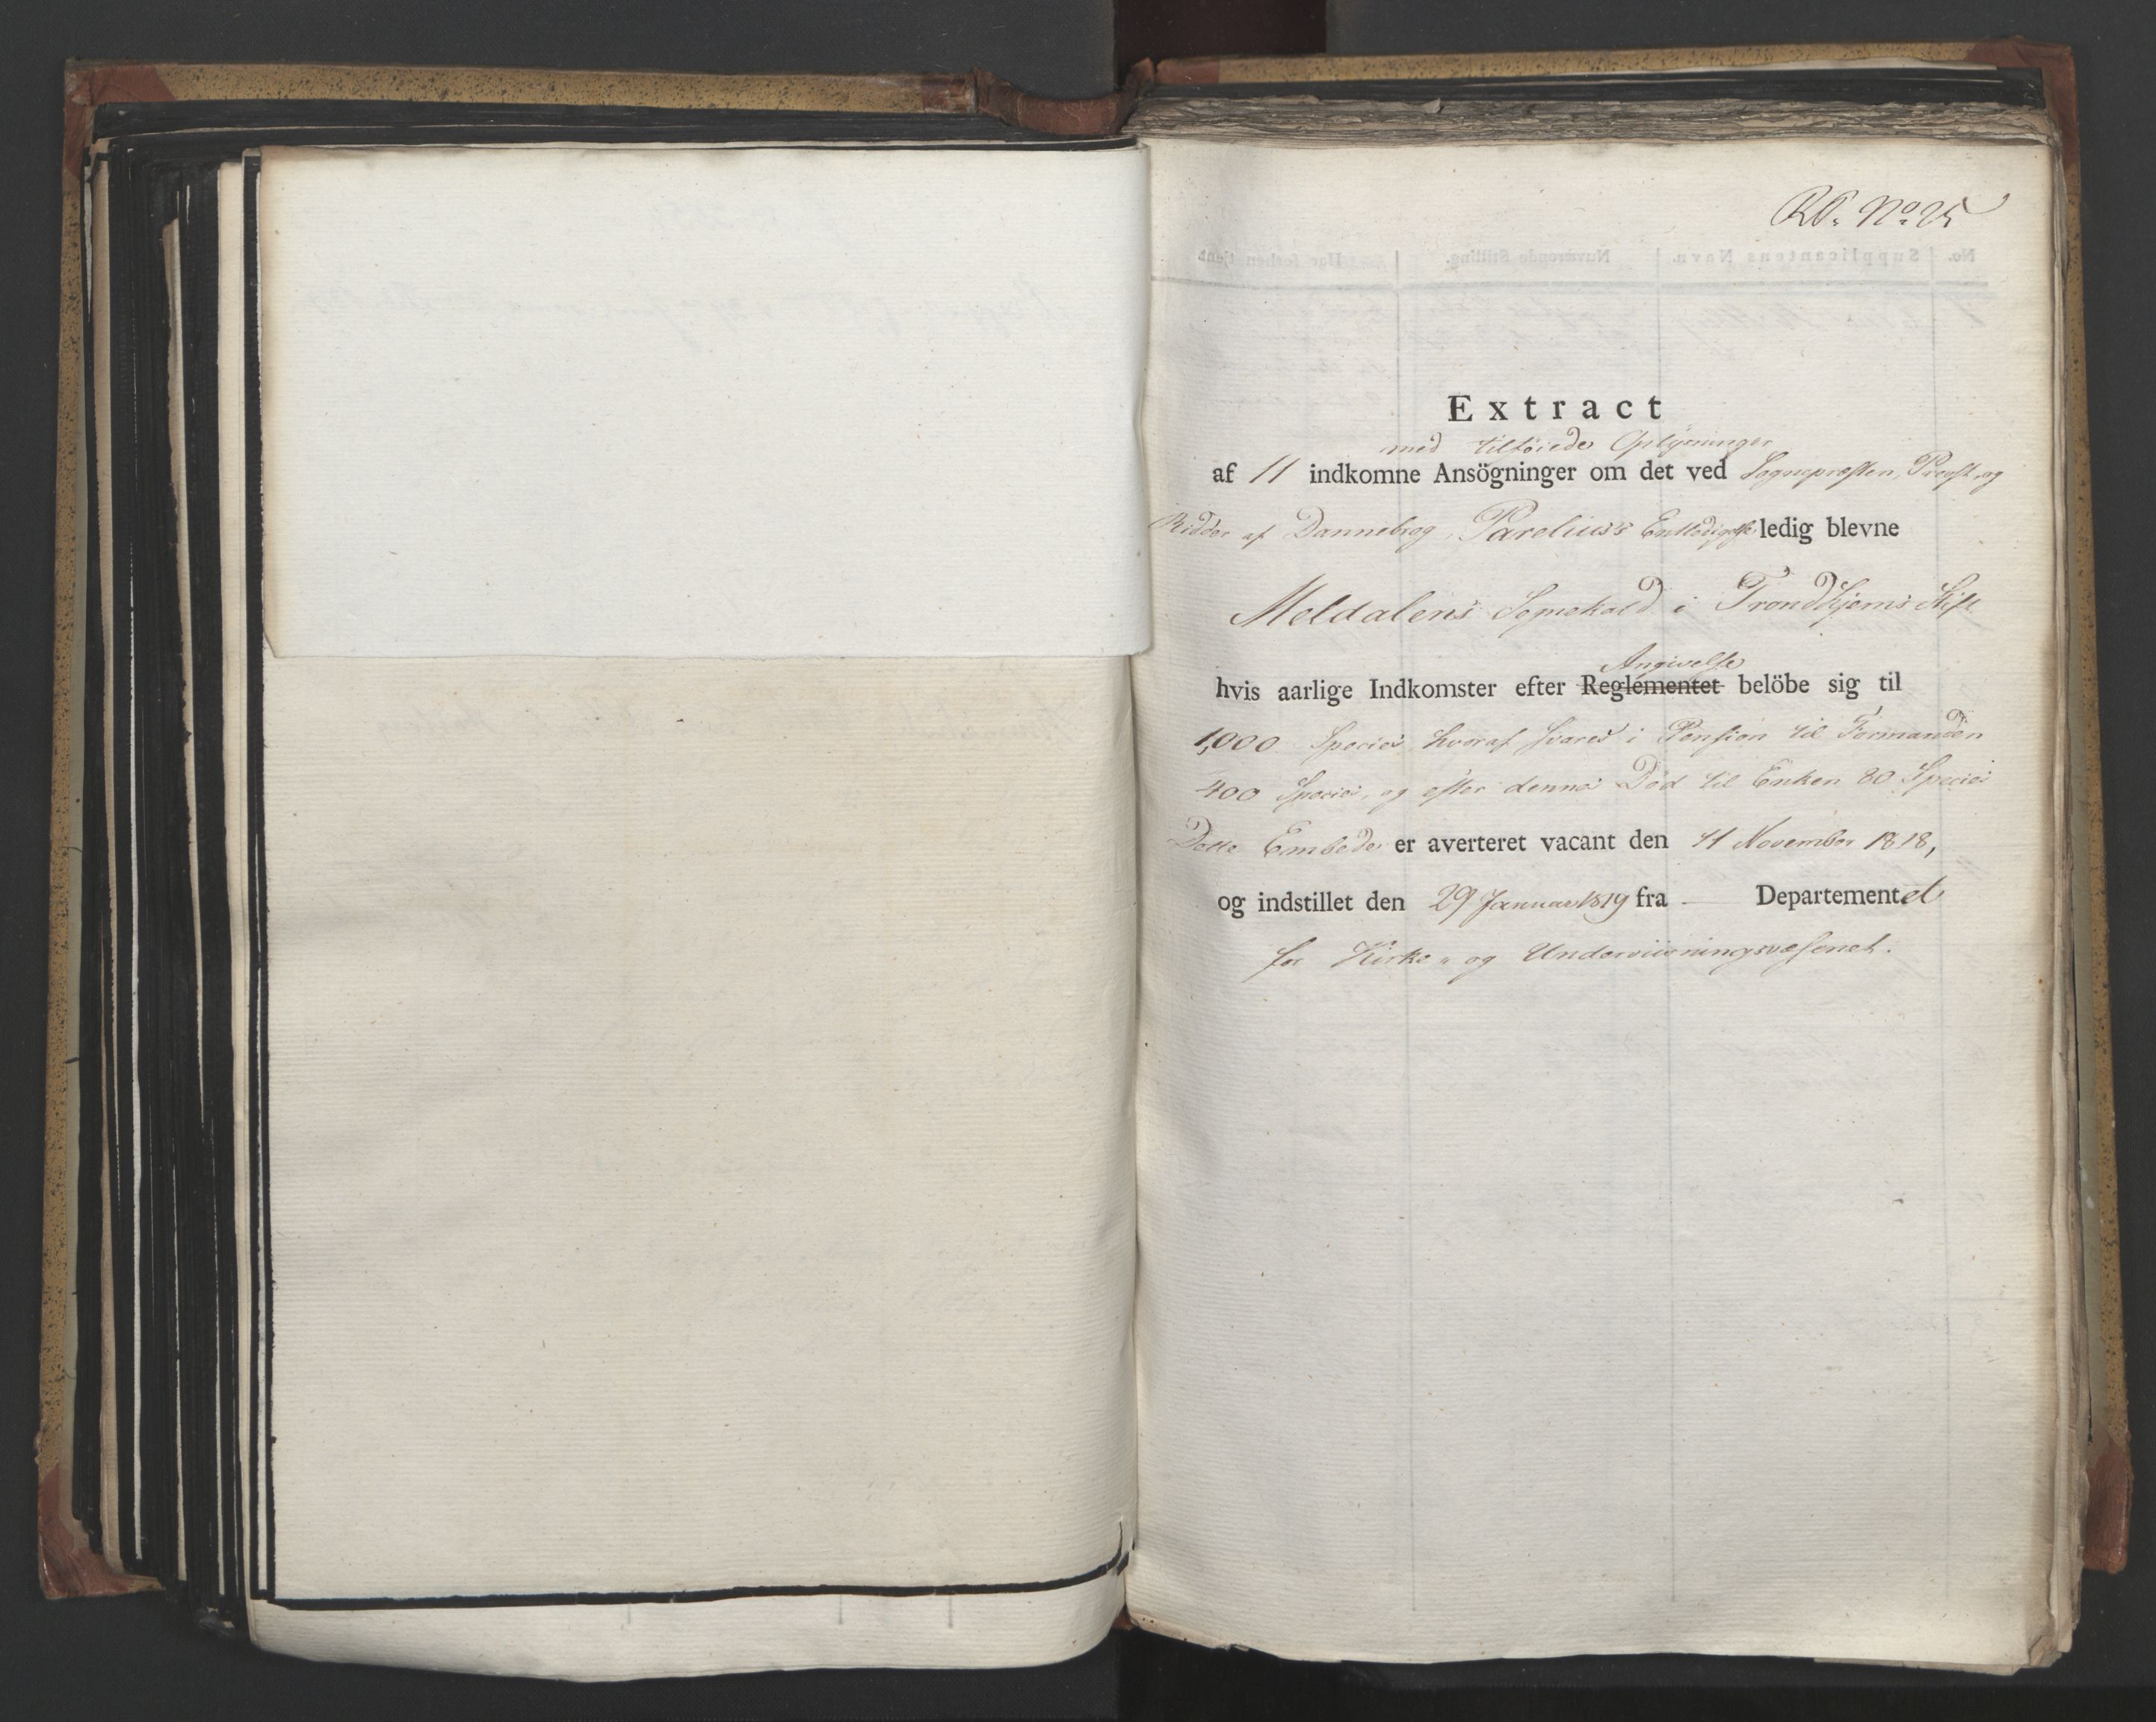 No. 25
Extract
med tilföiede Oplysninger
af 11 indkomne Ansögninger om det ved Sognepræsten, Provst og
Ridder af Dannebrog, Parelius's Entledigelse ledig blevne
Meldalens Sognekald i Trondhjems Stift
Angivelse
hvis aarlige Indkomster efter Reglementet belöbe sig til
1,000 Species, hvoraf svares i Pension til Formanden
400 Species, og efter dennes Död til Enken 80 Species
Dette Embede er averteret vacant den 11 November 1818,
og indstillet den 29 Januar 1819 fra - Departementet
for Kirke- og Underviisningsvæsenet.